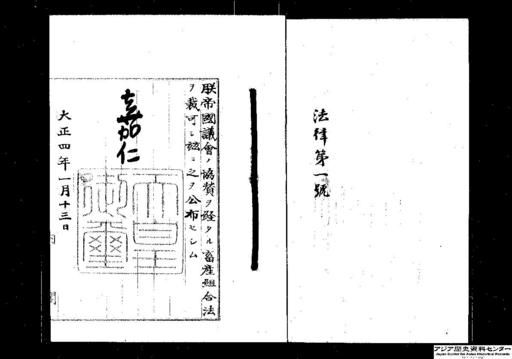 法律第一號
朕帝國議會ノ協賛ヲ経タル畜産組合法
ヲ裁可シ玆ニ之ヲ公布セシム
嘉仁
天皇
御璽
大正四年一月十三日
内閣
アジア歴史資料センター
Japan Center for Asian Historical Records